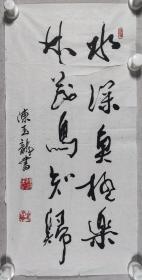 水深鱼极乐
林茂鸟知归
陈玉龙书